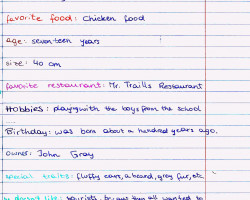 favorite food: Chicken food
age: seventeen years
size: 40 cm
favorite restaurant: Mr. Traills Restaurant
Hobbies: playing with the boys from the school
Birthday: was born about a hundred years ago.
owner: John Gray
special traits: fluffy ears, a beard, grey fur, etc
he doesn't like: tourists, because they all wanted to